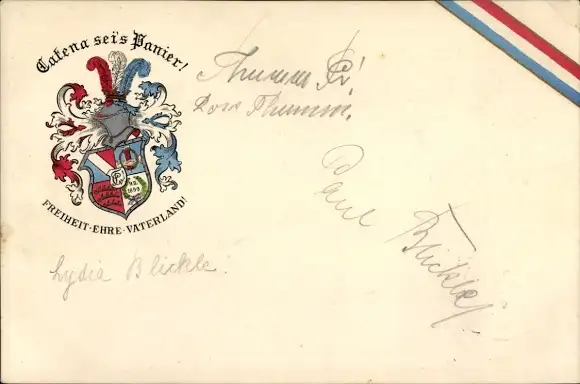 Catena sei's Panier!
FREIHEIT·EHRE·VATERLAND!
Thumm
Dora Thumm.
Paul Blickle
Lydia Blickle.
1899